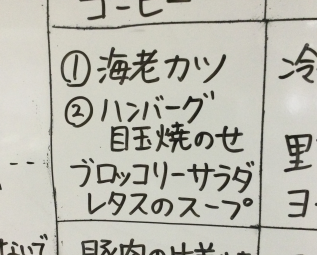 コーヒー
①海老カツ
②ハンバーグ
目玉焼のせ
ブロッコリーサラダ
レタスのスープ
冷
里
ヨ
ないで
豚肉の生姜